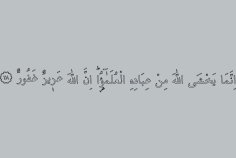 اِنَّمَا يَخْشَى اللّٰهَ مِنْ عِبَادِهِ الْعُلَمٰٓؤُا۟ اِنَّ اللّٰهَ عَزِيْزٌ غَفُوْرٌ ۝۲۸